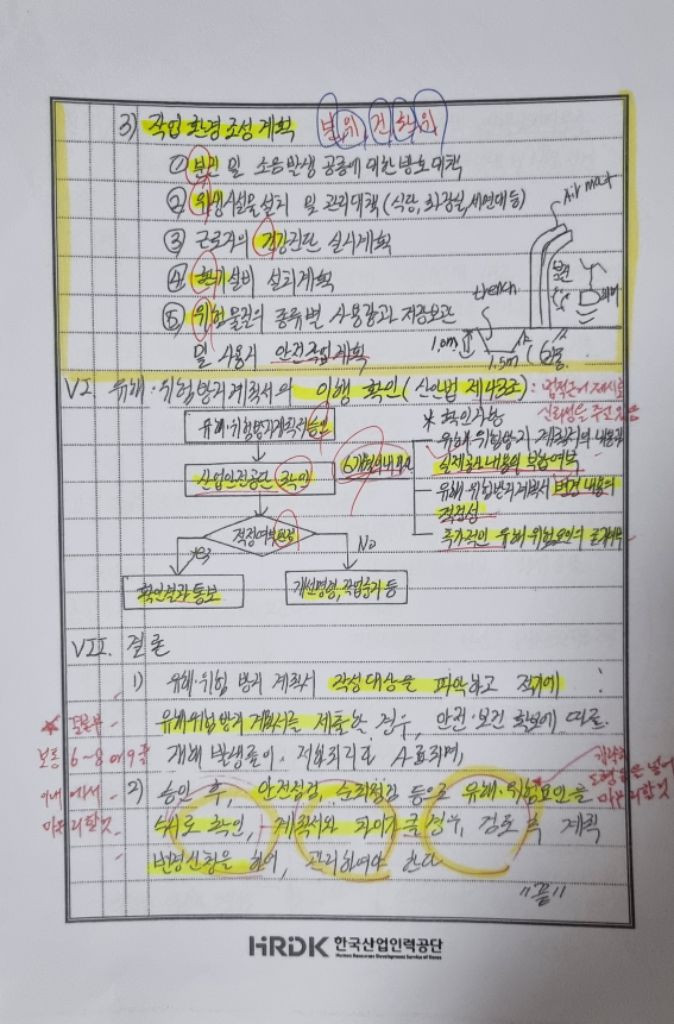 3) 작업 환경 조성 계획 분, 위, 건, 환, 위
① 분진 및 소음발생 공종에 대한 방호대책
② 위생시설물 설치 및 관리대책 (식당, 화장실, 세면대 등)
③ 근로자의 건강진단 실시계획
④ 환기설비 설치계획
⑤ 위험물질의 종류별 사용량과 저장·보관
및 사용시 안전작업계획
Air mat
분진
trench
1.0m
1.5m
VI. 유해·위험방지계획서의 이행 확인 (산안법 제43조) : 법적근거 제시로
신뢰성을 주고 있음
유해·위험방지계획서 승인
산업안전공단 확인
6개월 이내마다
적정여부 판정
Yes
No
확인결과 통보
개선명령, 작업중지 등
* 확인사항
- 유해·위험방지 계획서의 내용과
실제공사 내용의 부합여부
- 유해·위험방지계획서 변경 내용의
적정성
- 추가적인 유해·위험요인의 존재여부
VII. 결론
1) 유해·위험 방지 계획서 작성대상을 파악하고 적기에
유해위험방지 계획서를 제출할 경우, 안전·보건 확보에 따른
재해 발생률이 저하되리라 사료되며,
2) 승인 후, 안전점검, 순회점검 등으로 유해·위험요인을
수시로 확인, 계획서와 차이가 클 경우, 검토 후 계획
변경신청을 하여, 관리하여야 한다
"끝"
* 결론부
보통 6~8 or 9줄
이내에서
마무리할것
마무리할것
HRDK 한국산업인력공단
Human Resources Development Service of Korea